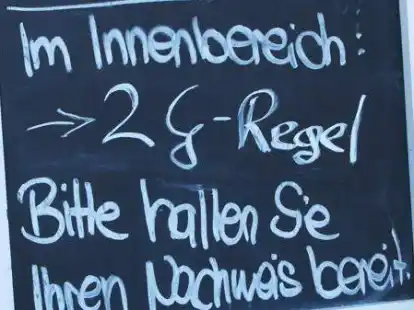 Im Innenbereich:
→ 2 G-Regel
Bitte halten Sie
Ihren Nachweis bereit.